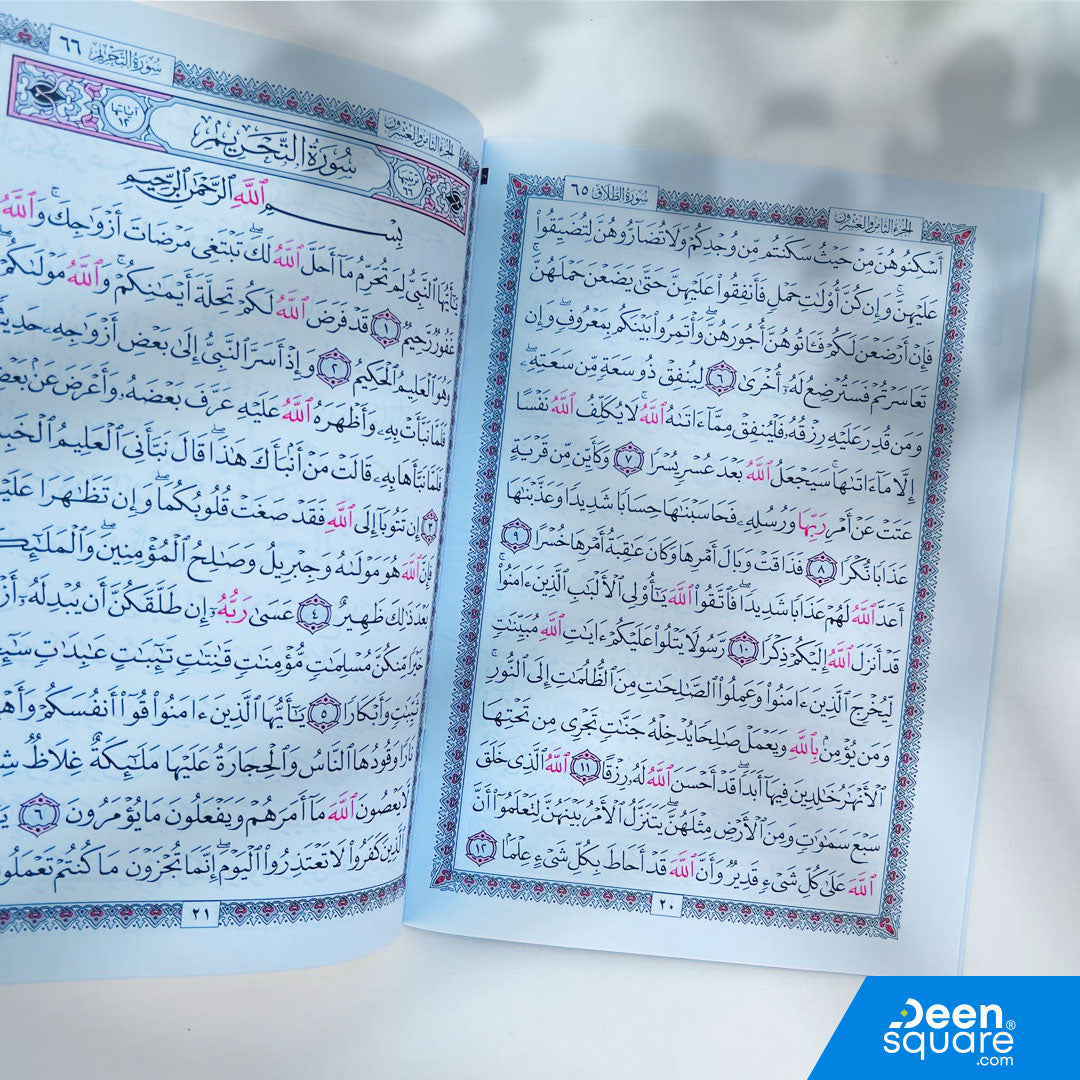 سُورَةُ الطَّلَاقِ ٦٥
الجُزْءُ الثَّامِنُ وَالعِشْرُونَ
أَسْكِنُوهُنَّ مِنْ حَيْثُ سَكَنتُم مِّن وُجْدِكُمْ وَلَا تُضَآرُّوهُنَّ لِتُضَيِّقُوا۟
عَلَيْهِنَّ ۚ وَإِن كُنَّ أُو۟لَـٰتِ حَمْلٍ فَأَنفِقُوا۟ عَلَيْهِنَّ حَتَّىٰ يَضَعْنَ حَمْلَهُنَّ ۚ
فَإِنْ أَرْضَعْنَ لَكُمْ فَـَٔاتُوهُنَّ أُجُورَهُنَّ ۖ وَأْتَمِرُوا۟ بَيْنَكُم بِمَعْرُوفٍ ۖ وَإِن
تَعَاسَرْتُمْ فَسَتُرْضِعُ لَهُۥٓ أُخْرَىٰ ٦ لِيُنفِقْ ذُو سَعَةٍ مِّن سَعَتِهِۦ ۖ
وَمَن قُدِرَ عَلَيْهِ رِزْقُهُۥ فَلْيُنفِقْ مِمَّآ ءَاتَىٰهُ ٱللَّهُ ۚ لَا يُكَلِّفُ ٱللَّهُ نَفْسًا
إِلَّا مَآ ءَاتَىٰهَا ۚ سَيَجْعَلُ ٱللَّهُ بَعْدَ عُسْرٍ يُسْرًا ٧ وَكَأَيِّن مِّن قَرْيَةٍ
عَتَتْ عَنْ أَمْرِ رَبِّهَا وَرُسُلِهِۦ فَحَاسَبْنَـٰهَا حِسَابًا شَدِيدًا وَعَذَّبْنَـٰهَا
عَذَابًا نُّكْرًا ٨ فَذَاقَتْ وَبَالَ أَمْرِهَا وَكَانَ عَـٰقِبَةُ أَمْرِهَا خُسْرًا ٩
أَعَدَّ ٱللَّهُ لَهُمْ عَذَابًا شَدِيدًا ۖ فَٱتَّقُوا۟ ٱللَّهَ يَـٰٓأُو۟لِى ٱلْأَلْبَـٰبِ ٱلَّذِينَ ءَامَنُوا۟ ۚ
قَدْ أَنزَلَ ٱللَّهُ إِلَيْكُمْ ذِكْرًا ١٠ رَّسُولًا يَتْلُوا۟ عَلَيْكُمْ ءَايَـٰتِ ٱللَّهِ مُبَيِّنَـٰتٍ
لِّيُخْرِجَ ٱلَّذِينَ ءَامَنُوا۟ وَعَمِلُوا۟ ٱلصَّـٰلِحَـٰتِ مِنَ ٱلظُّلُمَـٰتِ إِلَى ٱلنُّورِ ۚ
وَمَن يُؤْمِنۢ بِٱللَّهِ وَيَعْمَلْ صَـٰلِحًا يُدْخِلْهُ جَنَّـٰتٍ تَجْرِى مِن تَحْتِهَا
ٱلْأَنْهَـٰرُ خَـٰلِدِينَ فِيهَآ أَبَدًا ۖ قَدْ أَحْسَنَ ٱللَّهُ لَهُۥ رِزْقًا ١١ ٱللَّهُ ٱلَّذِى خَلَقَ
سَبْعَ سَمَـٰوَٰتٍ وَمِنَ ٱلْأَرْضِ مِثْلَهُنَّ يَتَنَزَّلُ ٱلْأَمْرُ بَيْنَهُنَّ لِتَعْلَمُوٓا۟ أَنَّ
ٱللَّهَ عَلَىٰ كُلِّ شَىْءٍ قَدِيرٌ وَأَنَّ ٱللَّهَ قَدْ أَحَاطَ بِكُلِّ شَىْءٍ عِلْمًۢا ١٢
٢٠
الجُزْءُ الثَّامِنُ وَالعِشْرُونَ
سُورَةُ التَّحْرِيمِ ٦٦
ترتيبها ٦٦
سُورَةُ التَّحْرِيمِ
آياتها ١٢
بِسْمِ ٱللَّهِ ٱلرَّحْمَـٰنِ ٱلرَّحِيمِ
يَـٰٓأَيُّهَا ٱلنَّبِىُّ لِمَ تُحَرِّمُ مَآ أَحَلَّ ٱللَّهُ لَكَ ۖ تَبْتَغِى مَرْضَاتَ أَزْوَٰجِكَ ۚ وَٱللَّهُ
غَفُورٌ رَّحِيمٌ ١ قَدْ فَرَضَ ٱللَّهُ لَكُمْ تَحِلَّةَ أَيْمَـٰنِكُمْ ۚ وَٱللَّهُ مَوْلَىٰكُمْ
وَهُوَ ٱلْعَلِيمُ ٱلْحَكِيمُ ٢ وَإِذْ أَسَرَّ ٱلنَّبِىُّ إِلَىٰ بَعْضِ أَزْوَٰجِهِۦ
فَلَمَّا نَبَّأَتْ بِهِۦ وَأَظْهَرَهُ ٱللَّهُ عَلَيْهِ عَرَّفَ بَعْضَهُۥ وَأَعْرَضَ عَنۢ
فَلَمَّا نَبَّأَهَا بِهِۦ قَالَتْ مَنْ أَنۢبَأَكَ هَـٰذَا ۖ قَالَ نَبَّأَنِىَ ٱلْعَلِيمُ
٣ إِن تَتُوبَآ إِلَى ٱللَّهِ فَقَدْ صَغَتْ قُلُوبُكُمَا ۖ وَإِن تَظَـٰهَرَا
فَإِنَّ ٱللَّهَ هُوَ مَوْلَىٰهُ وَجِبْرِيلُ وَصَـٰلِحُ ٱلْمُؤْمِنِينَ ۖ
بَعْدَ ذَٰلِكَ ظَهِيرٌ ٤ عَسَىٰ رَبُّهُۥٓ إِن طَلَّقَكُنَّ أَن يُبْدِلَهُۥٓ
خَيْرًا مِّنكُنَّ مُسْلِمَـٰتٍ مُّؤْمِنَـٰتٍ قَـٰنِتَـٰتٍ تَـٰٓئِبَـٰتٍ عَـٰبِدَٰتٍ
ثَيِّبَـٰتٍ وَأَبْكَارًا ٥ يَـٰٓأَيُّهَا ٱلَّذِينَ ءَامَنُوا۟ قُوٓا۟ أَنفُسَكُمْ
نَارًا وَقُودُهَا ٱلنَّاسُ وَٱلْحِجَارَةُ عَلَيْهَا مَلَـٰٓئِكَةٌ غِلَاظٌ
لَّا يَعْصُونَ ٱللَّهَ مَآ أَمَرَهُمْ وَيَفْعَلُونَ مَا يُؤْمَرُونَ ٦
ٱلَّذِينَ كَفَرُوا۟ لَا تَعْتَذِرُوا۟ ٱلْيَوْمَ ۖ إِنَّمَا تُجْزَوْنَ مَا كُنتُمْ تَعْمَلُونَ
٢١
Deen
square®
.com